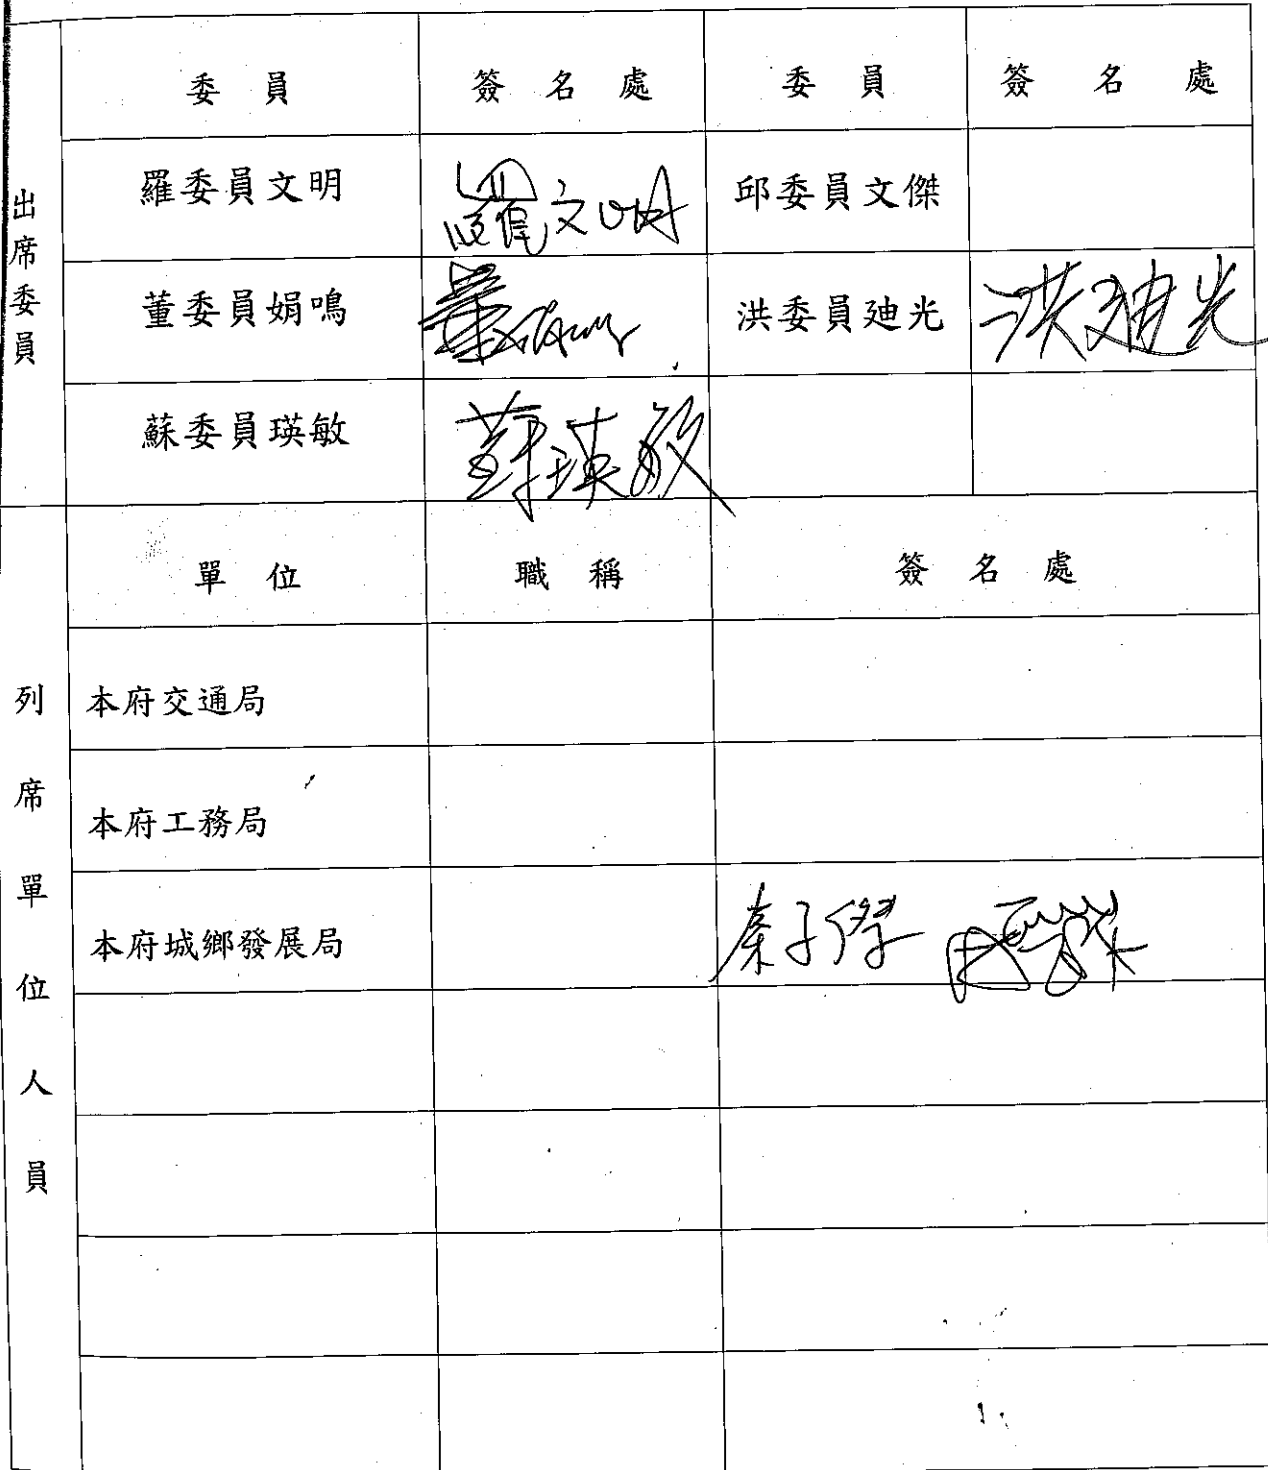 出席委員
委員 簽名處 委員 簽名處
羅委員文明 羅文明 邱委員文傑
董委員娟鳴 董娟鳴 洪委員廸光 洪廸光
蘇委員瑛敏 蘇瑛敏
列席單位人員
單位 職稱 簽名處
本府交通局
本府工務局
本府城鄉發展局 秦子傑